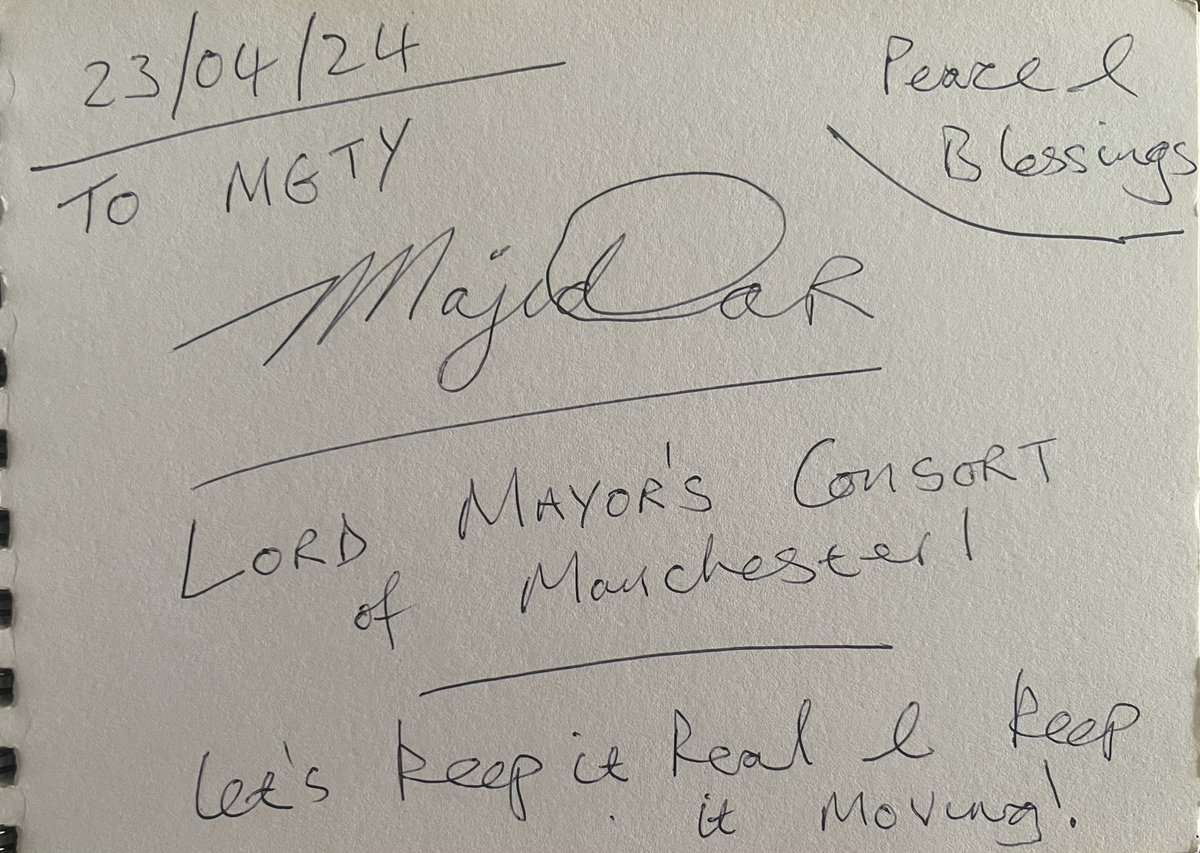 23/04/24
Peace &
Blessings
To MGTY
Majid Dar
LORD MAYOR'S CONSORT
of Manchester!
Let's keep it Real & keep
it MOVING!